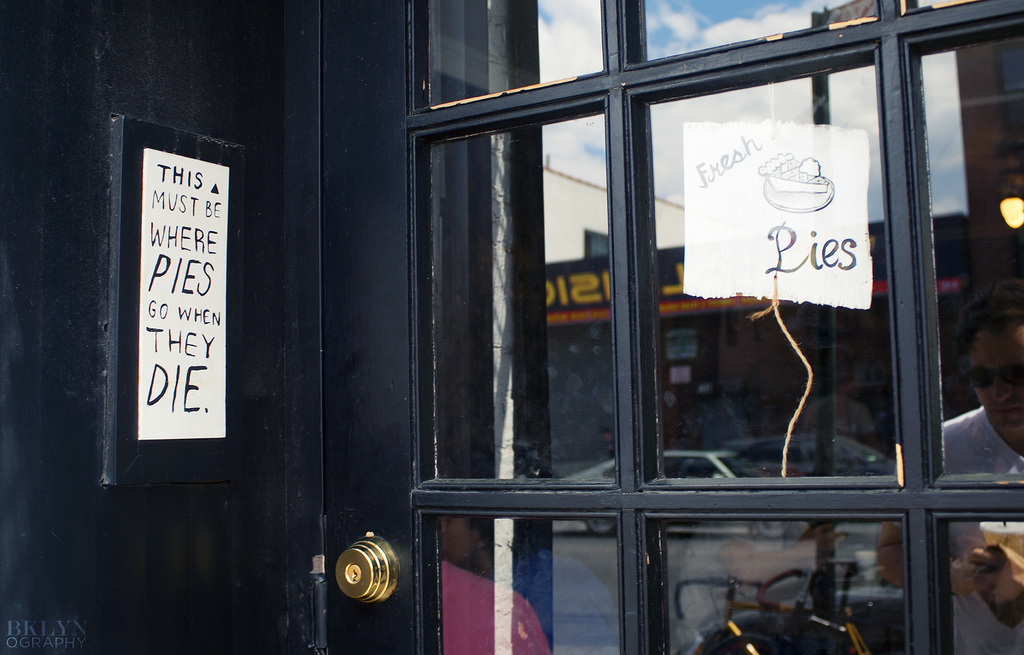 THIS ▲
MUST BE
WHERE
PIES
GO WHEN
THEY
DIE.
Fresh
Pies
BKLYN
OGRAPHY